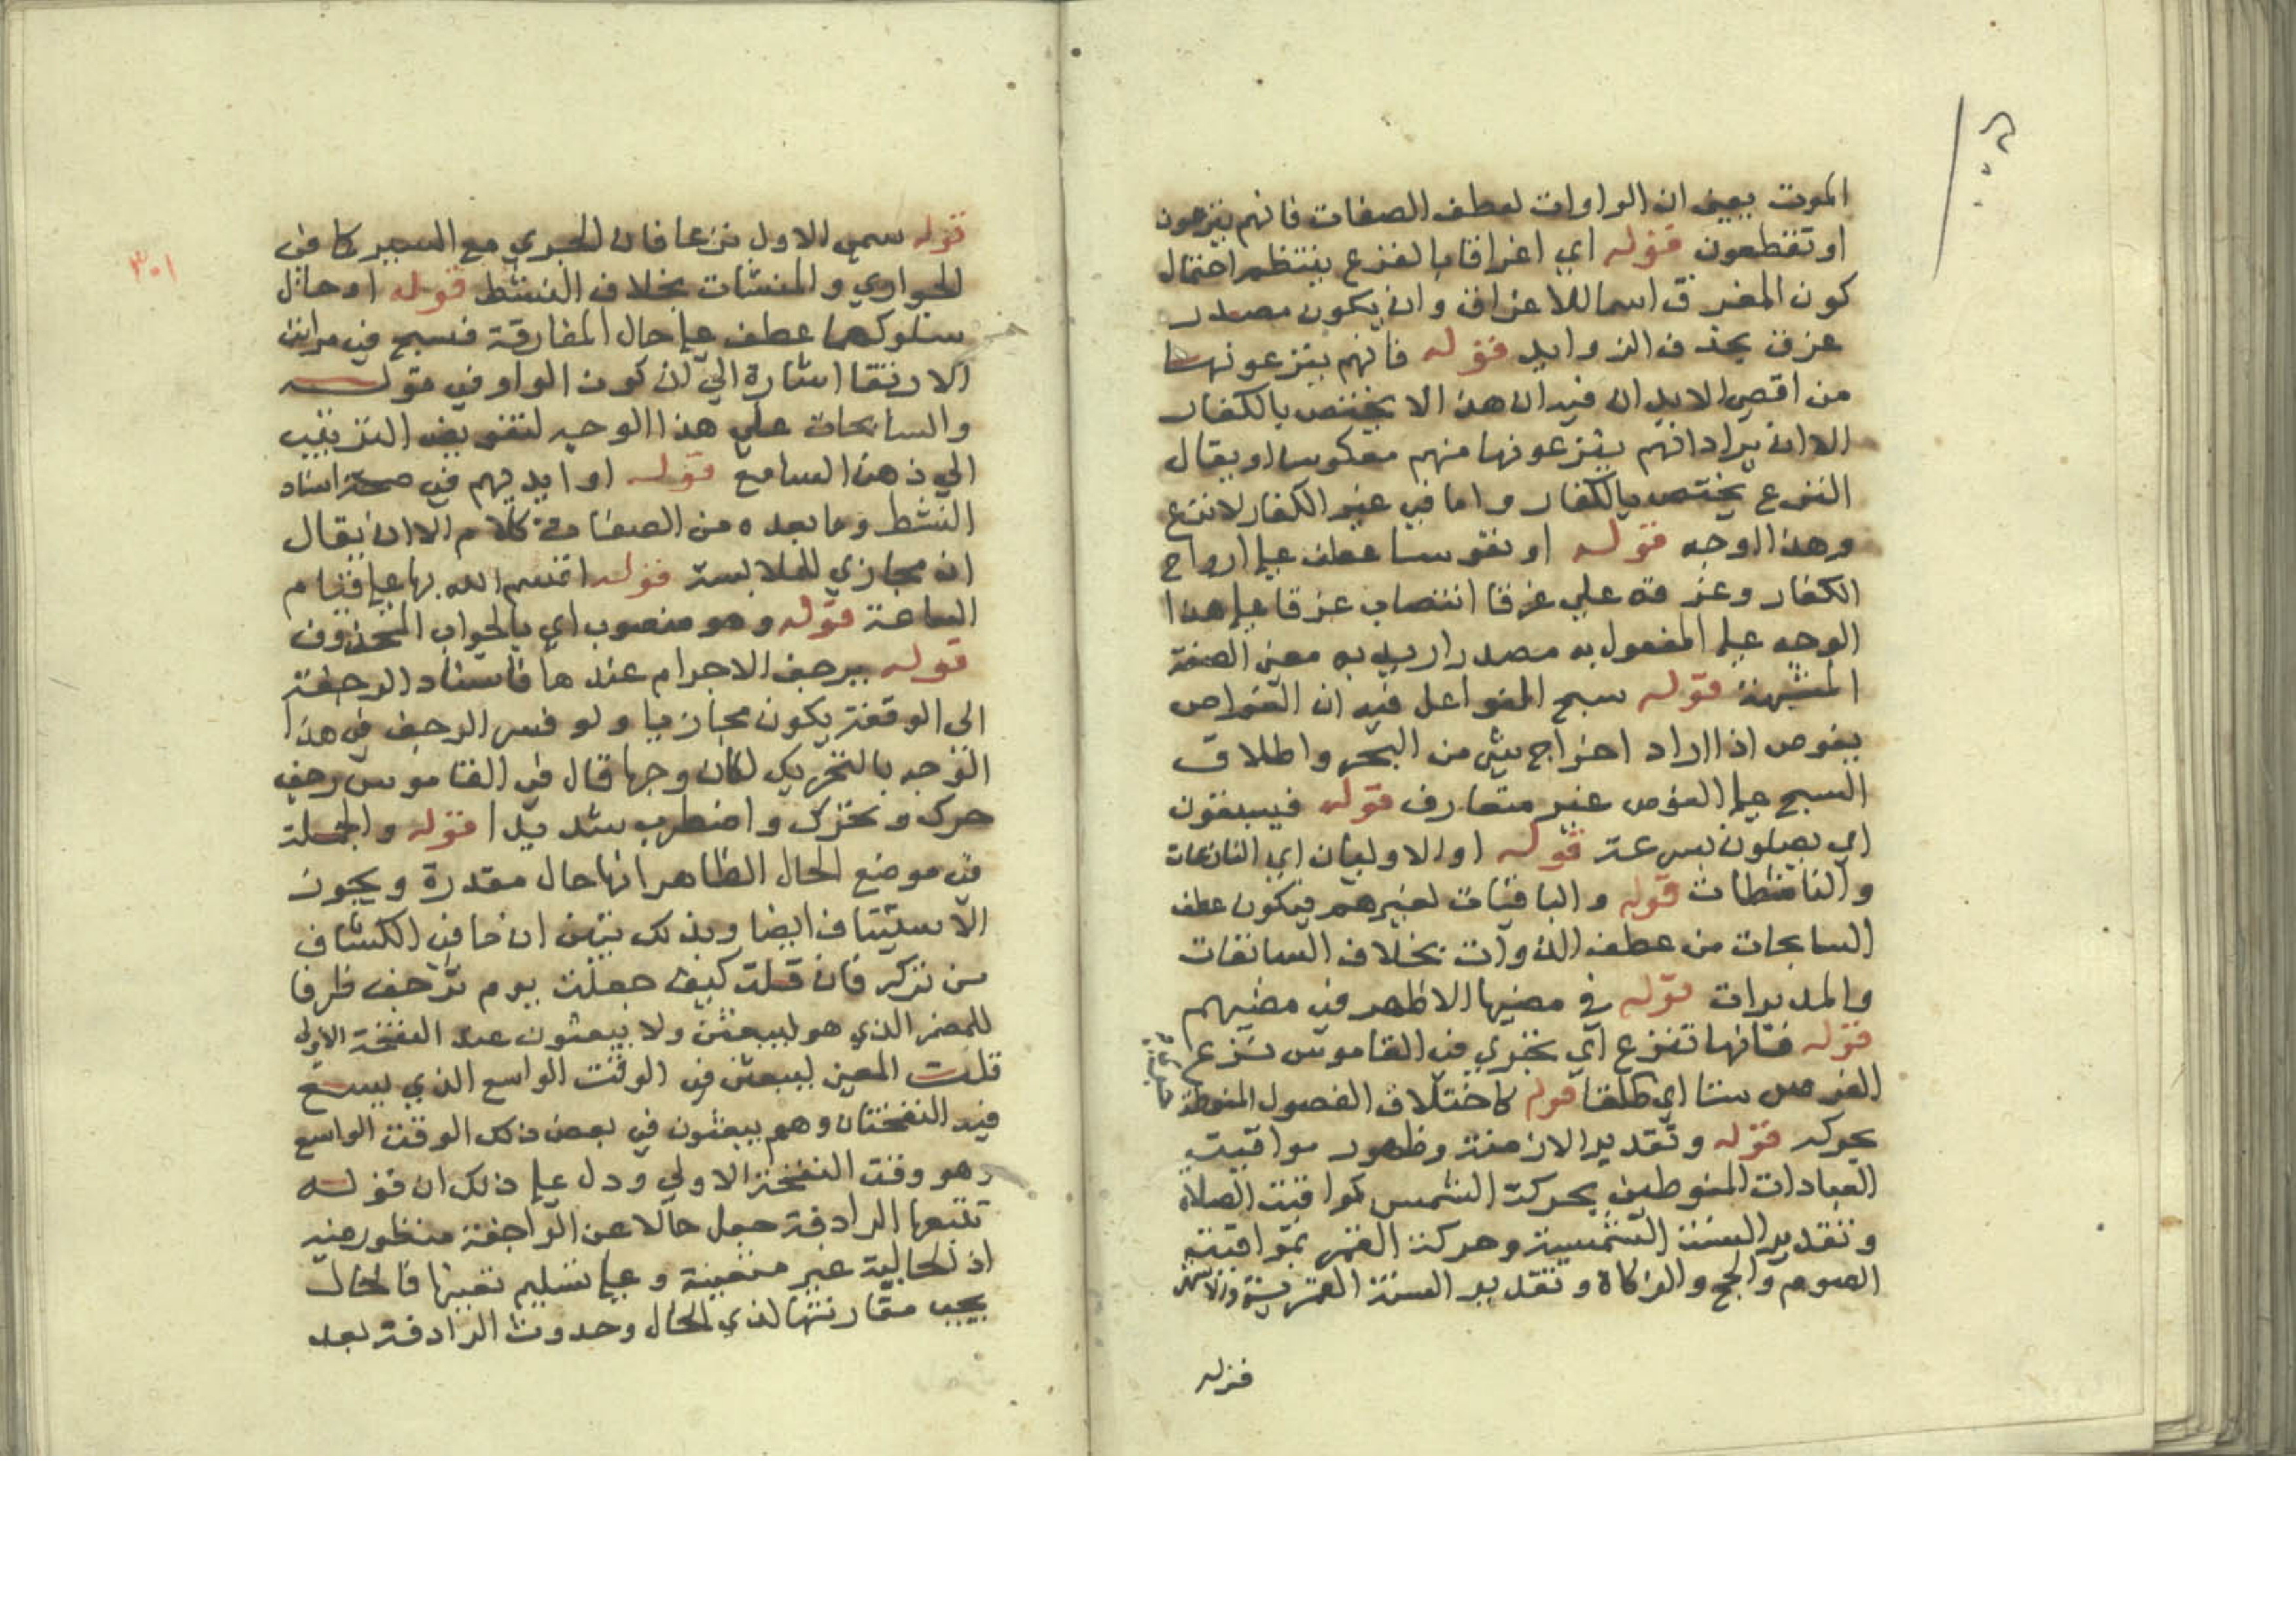 الموت يعني ان الواوات لعطف الصفات فانهم ينزعون
او تقطعون قوله اي اغراقا بالفزع ينتظم احتمال
كون المغرق اسما للاغراق وان يكون مصدر
غرق بحذف الزوايد قوله فانهم ينزعونها
من اقصى الابدان فيه ان هذا لا يختص بالكفار
الا ان يراد انهم ينزعونها منهم معكوسا او يقال
النزع يختص بالكفار واما في غير الكفار لا نزع
وهذا الوجه قوله او نفوسا عطف على ارواح
الكفار وغرقه على غرقا انتصاب غرقا على هذا
الوجه على المفعول به مصدر اريد به معنى الصفة
المشبهة قوله سبح الغواص فيه ان الغواص
يغوص اذا اراد اخراج شي من البحر واطلاق
السبح على الغوص غير متعارف قوله فيسبقون
اي يصلون بسرعة قوله او الاوليان اي النازعات
والناشطات قوله والباقيات لغيرهم فيكون عطف
السابحات من عطف الذوات بخلاف السابقات
والمدبرات قوله في مضيها الاظهر في مضيهم
قوله فانها تنزع اي تجري في القاموس نزع
الفرس سننا اي طلقا قوله كاختلاف الفصول المنوطة
بحركه قوله وتقدير الازمنة وظهور مواقيت
العبادات المنوطين بحركة الشمس كمواقيت الصلاة
وتقدير السنة الشمسية وحركة القمر بمواقيت
الصوم والحج والزكاة وتقدير السنة القمرية والاشهر
قوله
٣٠١
قوله سمي الاول نزعا فان الجري مع السير كما في
الجواري والمنشات بخلاف النشط قوله او حال
سلوكها عطف على حال المفارقة فسبح في مراتب
الارتقا اشارة الى ان كون الواو في قوله
والسابحات على هذا الوجه لتفويض الترتيب
الى ذهن السامع قوله او ايديهم في صحة اسناد
النشط وما بعده من الصفات كلام الا ان يقال
انه مجازي للملابسة قوله اقسم الله بها على قيام
الساعة قوله وهو منصوب اي بالجواب المحذوف
قوله يرجف الاجرام عندها فاسناد الرجفة
الى الوقعة يكون مجازيا ولو فسر الرجف في هذا
الوجه بالتحريك لكان وجها قال في القاموس رجف
حرك وتحرك واضطرب شديدا قوله والجملة
في موضع الحال الظاهر انها حال مقدرة ويجوز
الاستيناف ايضا وبذلك تبين ان ما في الكشاف
من ذكر فان قلت كيف جعلت يوم ترجف ظرفا
للمضمر الذي هو لتبعثن ولا يبعثون عند النفخة الاولى
قلت المعنى لتبعثن في الوقت الواسع الذي يسع
فيه النفختان وهم يبعثون في بعض ذلك الوقت الواسع
وهو وقت النفخة الاولى ودل على ذلك ان قوله
تتبعها الرادفة جعل حالا عن الراجفة منظور فيه
اذ الحالية غير متعينة وعلى تسليم تعينها فالحال
يجب مقارنتها لذي الحال وحدوث الرادفة بعد